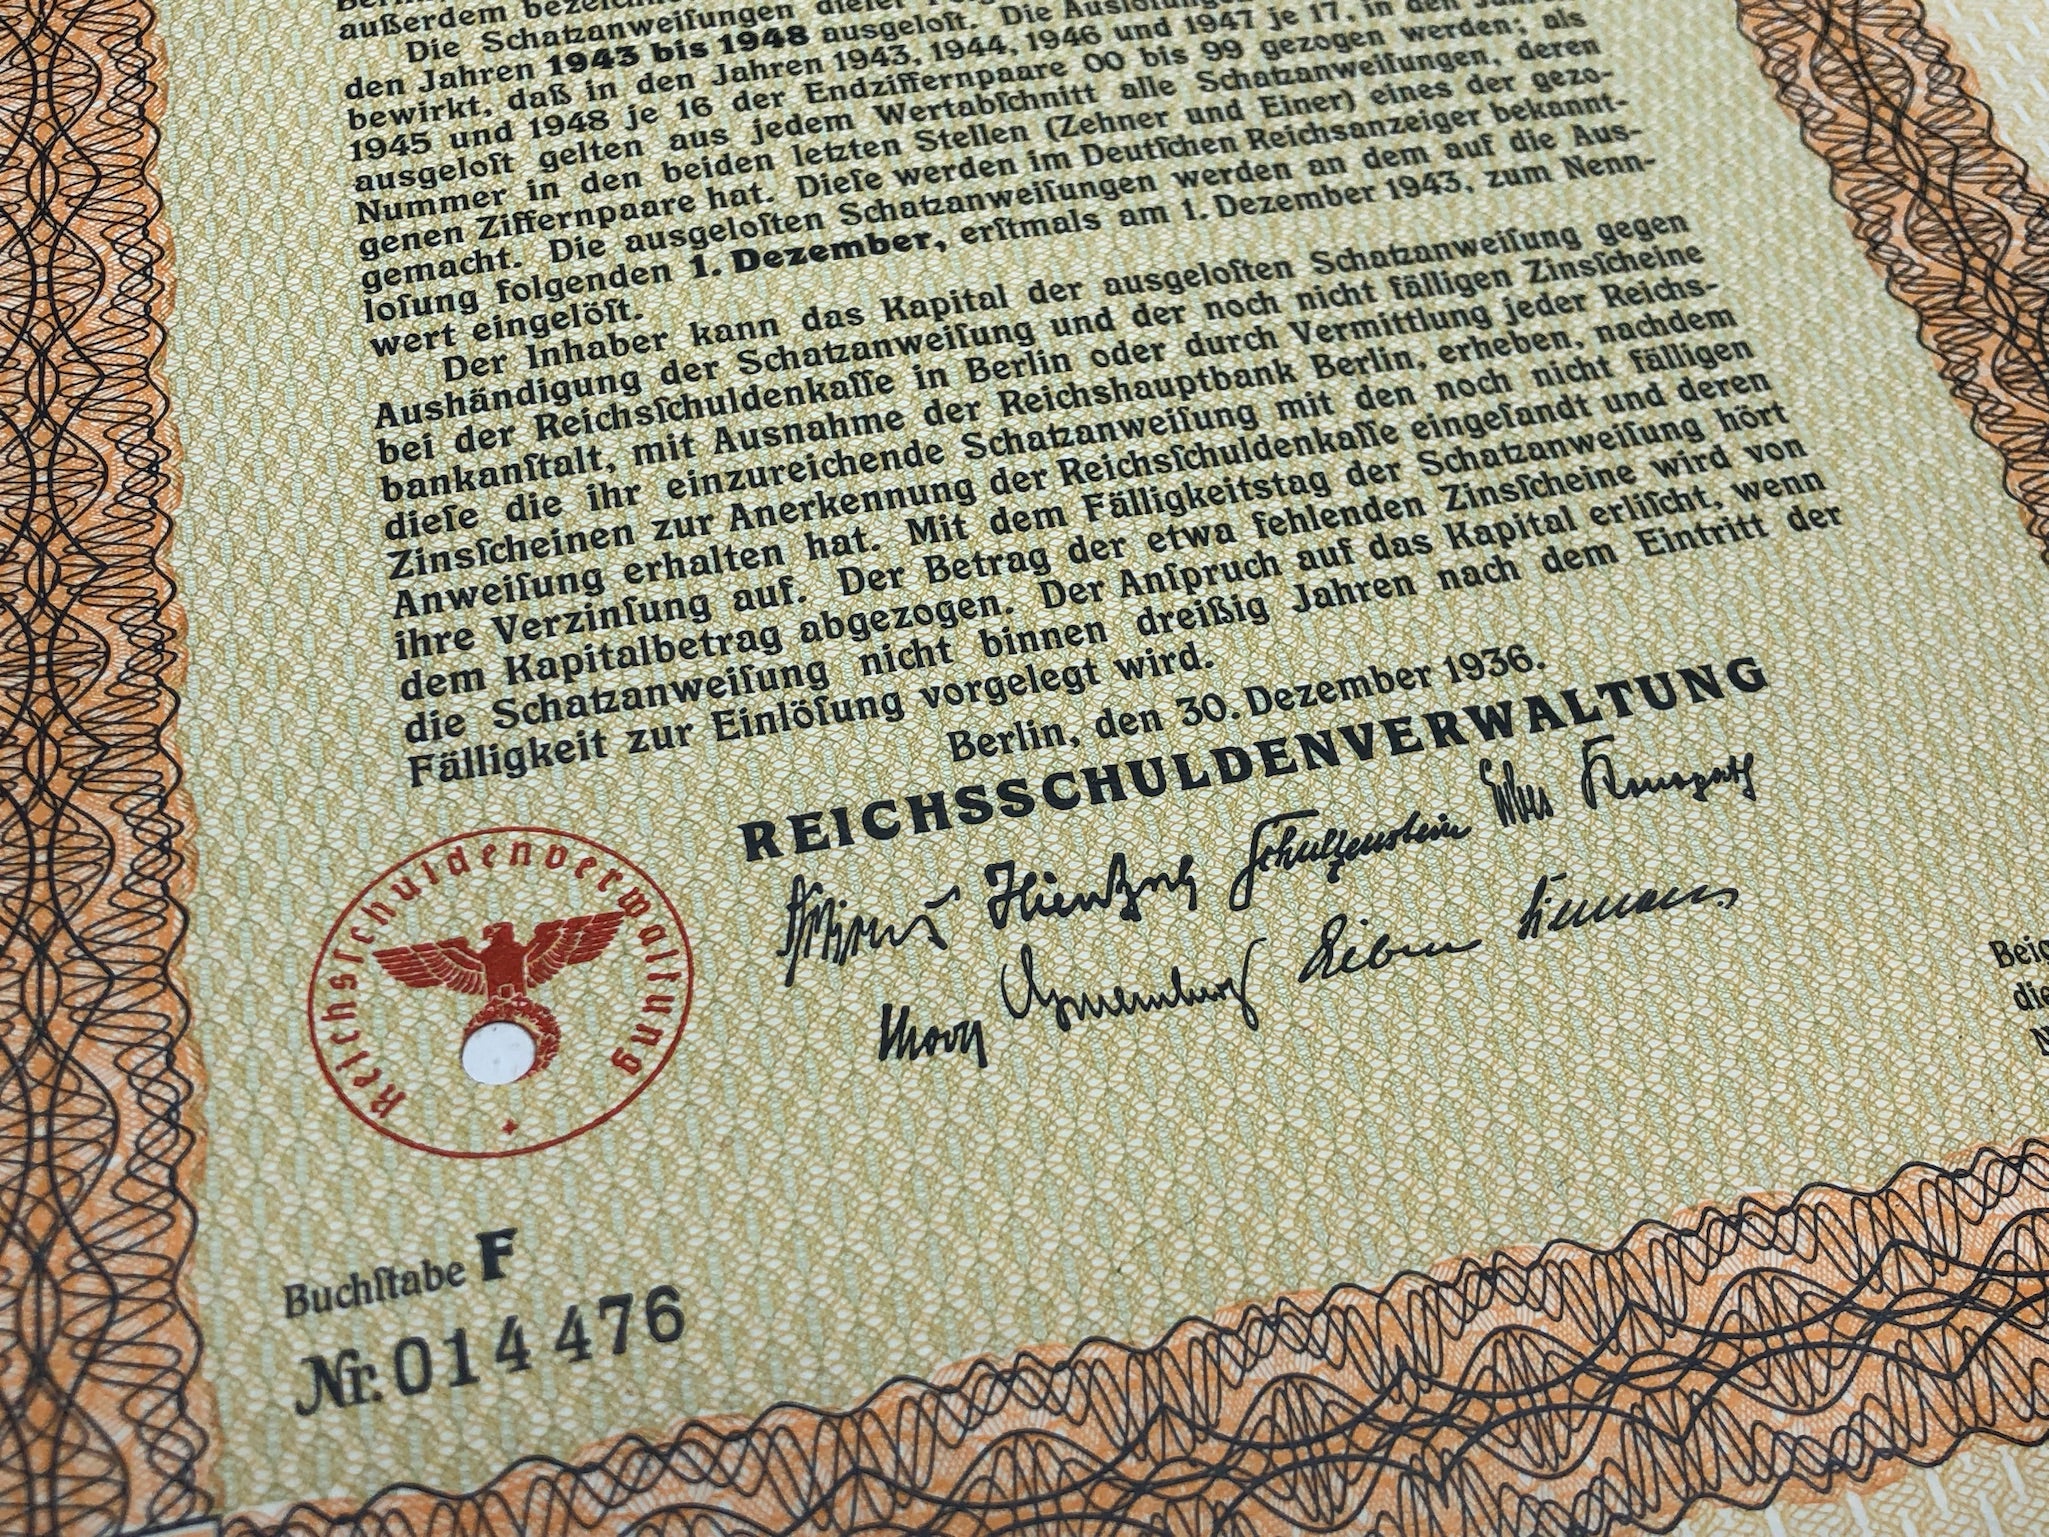 außerdem
Die Schatzanweiſungen dieſer
den Jahren 1943 bis 1948 ausgeloſt. Die
bewirkt, daß in den Jahren 1943, 1944, 1946 und 1947 je 17, in den
1945 und 1948 je 16 der Endziffernpaare 00 bis 99 gezogen werden; als
ausgeloſt gelten aus jedem Wertabſchnitt alle Schatzanweiſungen, deren
Nummer in den beiden letzten Stellen (Zehner und Einer) eines der gezo-
genen Ziffernpaare hat. Dieſe werden im Deutſchen Reichsanzeiger bekannt-
gemacht. Die ausgeloſten Schatzanweiſungen werden an dem auf die Aus-
loſung folgenden 1. Dezember, erſtmals am 1. Dezember 1943, zum Nenn-
wert eingelöſt.
Der Inhaber kann das Kapital der ausgeloſten Schatzanweiſung gegen
Aushändigung der Schatzanweiſung und der noch nicht fälligen Zinsſcheine
bei der Reichsſchuldenkaſſe in Berlin oder durch Vermittlung jeder Reichs-
bankanſtalt, mit Ausnahme der Reichshauptbank Berlin, erheben, nachdem
dieſe die ihr einzureichende Schatzanweiſung mit den noch nicht fälligen
Zinsſcheinen zur Anerkennung der Reichsſchuldenkaſſe eingeſandt und deren
Anweiſung erhalten hat. Mit dem Fälligkeitstag der Schatzanweiſung hört
ihre Verzinſung auf. Der Betrag der etwa fehlenden Zinsſcheine wird von
dem Kapitalbetrag abgezogen. Der Anſpruch auf das Kapital erliſcht, wenn
die Schatzanweiſung nicht binnen dreißig Jahren nach dem Eintritt der
Fälligkeit zur Einlöſung vorgelegt wird.
Berlin, den 30. Dezember 1936.
REICHSSCHULDENVERWALTUNG
Reichsſchuldenverwaltung
Buchſtabe F
Nr. 014 476